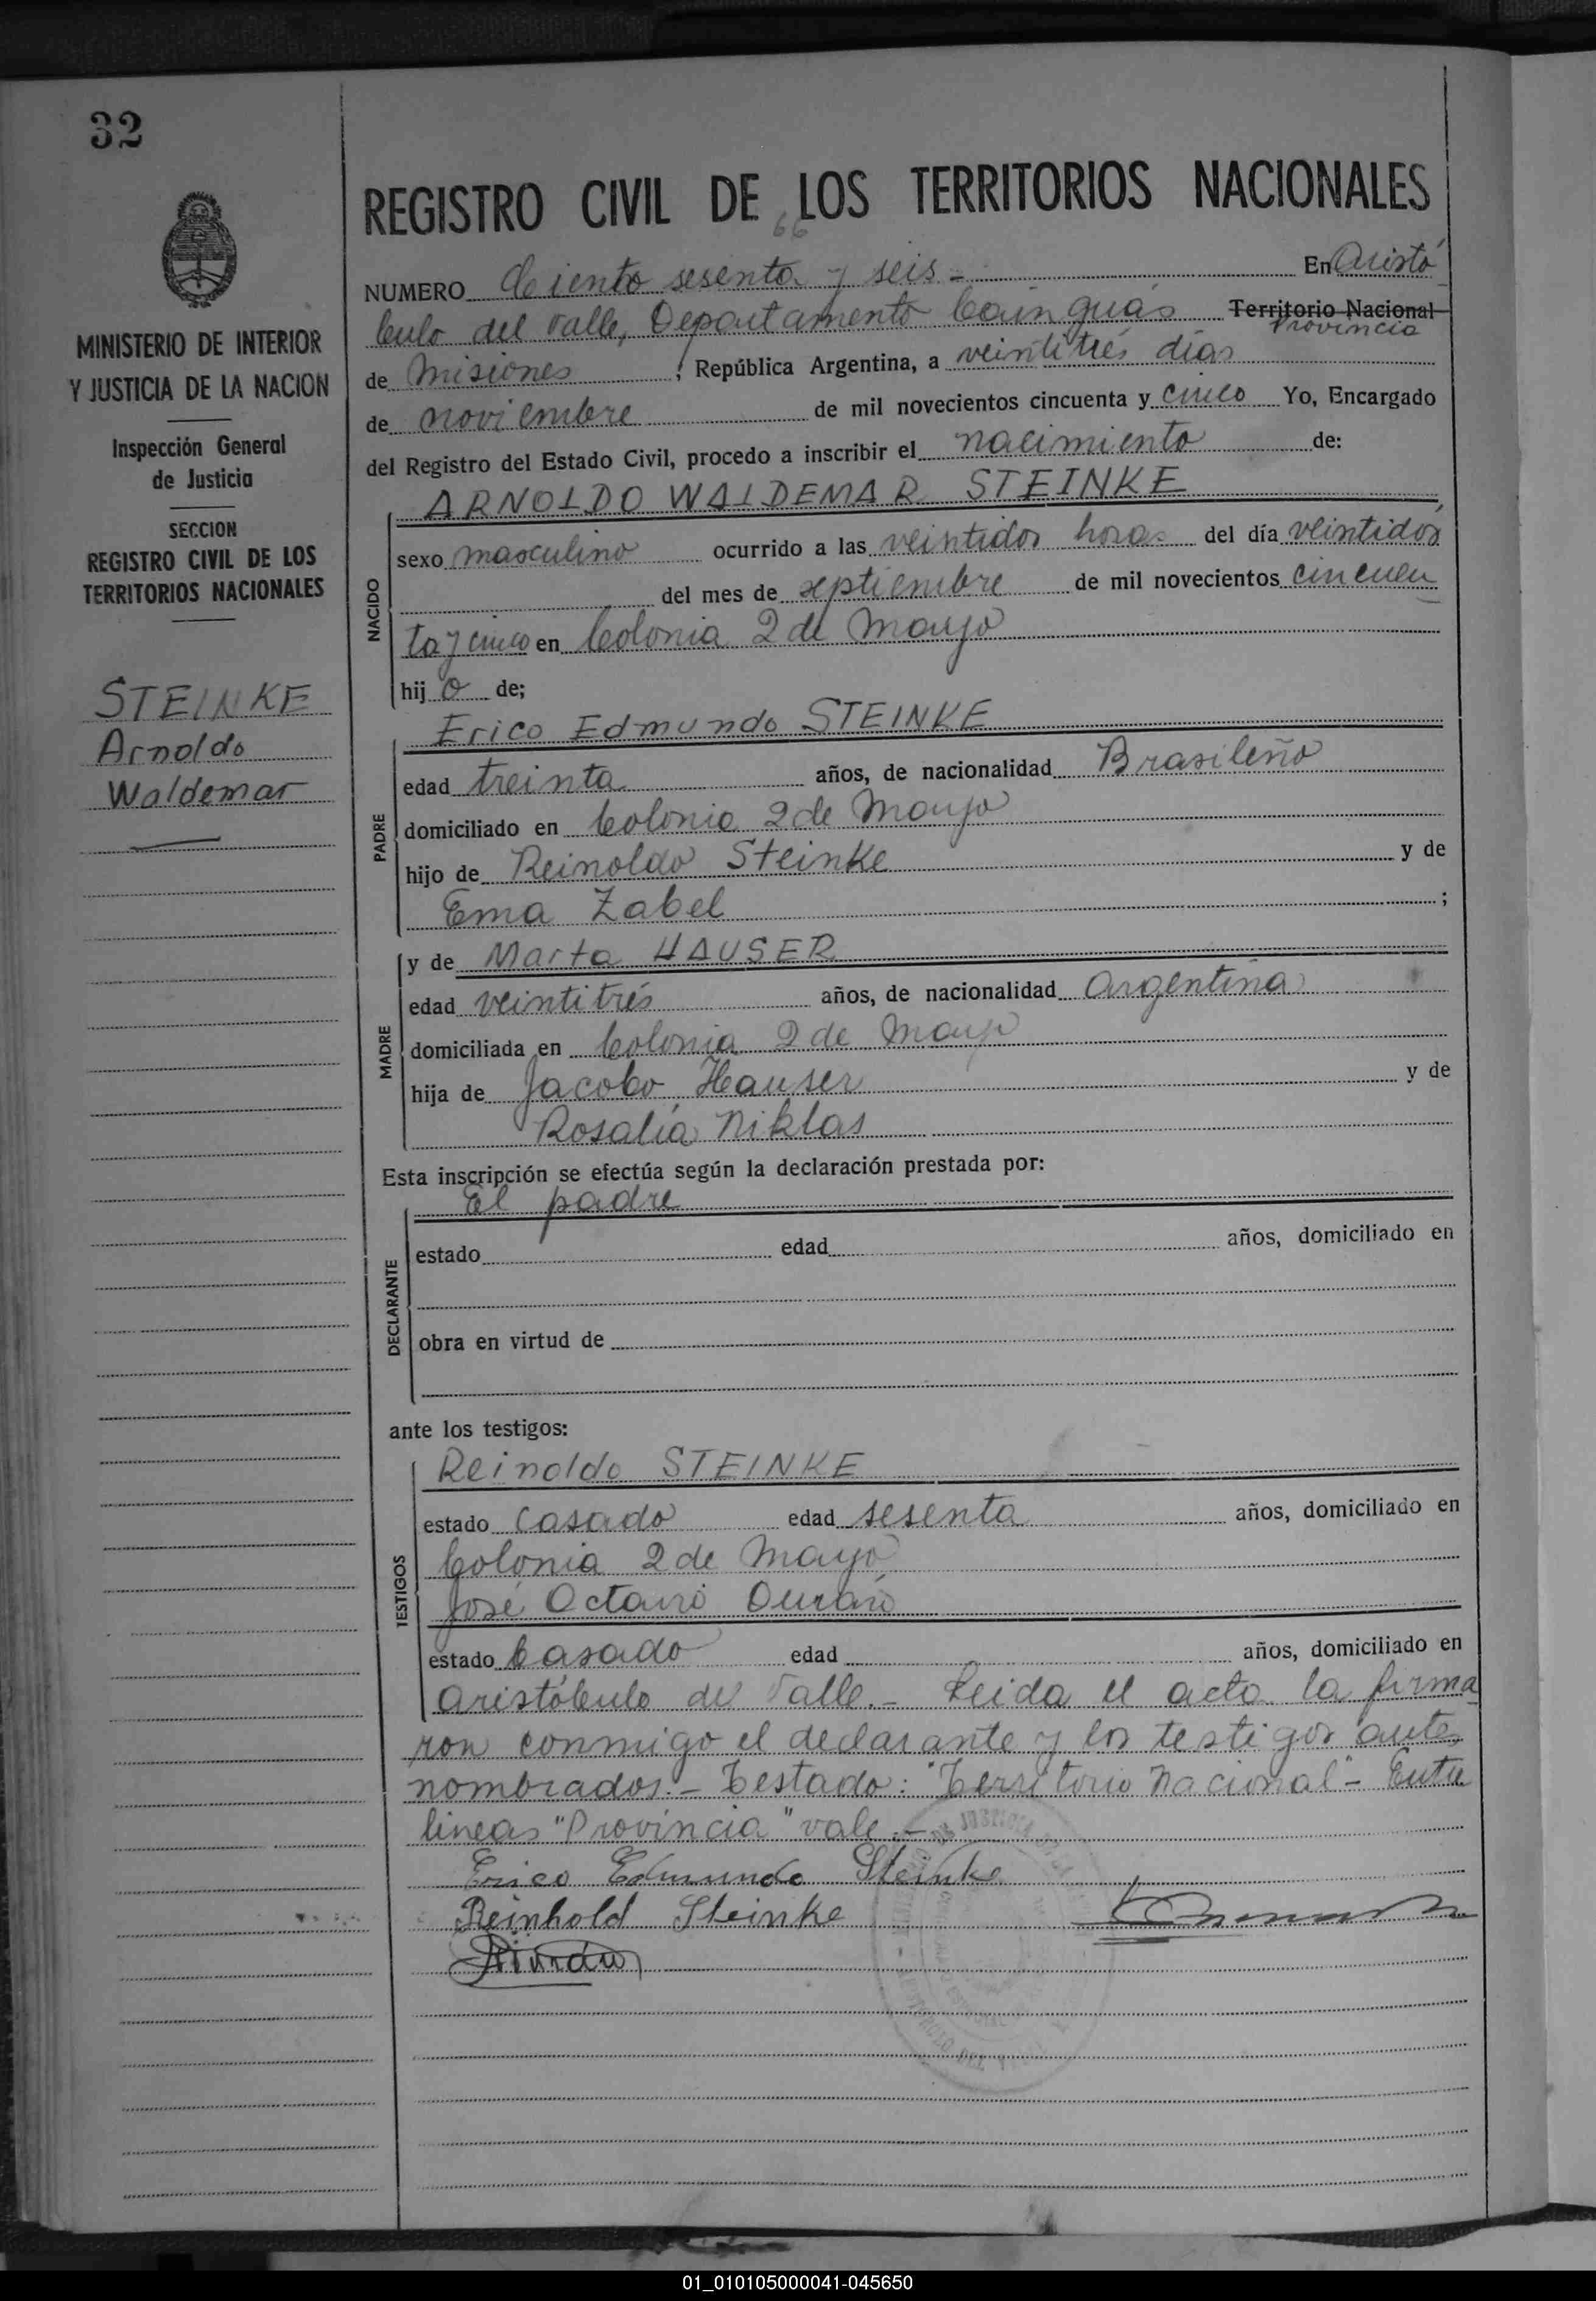 32
REGISTRO CIVIL DE LOS TERRITORIOS NACIONALES
66
NUMERO Ciento sesenta y seis.- En Aristó
bulo del Valle, Departamento Cainguás Territorio Nacional
Provincia
de Misiones, República Argentina, a veintitrés días
de noviembre de mil novecientos cincuenta y cinco Yo, Encargado
del Registro del Estado Civil, procedo a inscribir el nacimiento de:
MINISTERIO DE INTERIOR
Y JUSTICIA DE LA NACION
Inspección General
de Justicia
SECCION
REGISTRO CIVIL DE LOS
TERRITORIOS NACIONALES
STEINKE
Arnoldo
Waldemar
NACIDO
ARNOLDO WALDEMAR STEINKE
sexo masculino ocurrido a las veintidos horas del día veintidos
del mes de septiembre de mil novecientos cincuen
ta y cinco en Colonia 2 de Mayo
hijo de;
PADRE
Erico Edmundo STEINKE
edad treinta años, de nacionalidad Brasileño
domiciliado en Colonia 2 de Mayo
hijo de Reinoldo Steinke y de
Ema Zabel ;
MADRE
y de Marta HAUSER
edad veintitrés años, de nacionalidad Argentina
domiciliada en Colonia 2 de Mayo
hija de Jacobo Hauser y de
Rosalía Niklas
Esta inscripción se efectúa según la declaración prestada por:
El padre
DECLARANTE
estado edad años, domiciliado en
obra en virtud de
ante los testigos:
TESTIGOS
Reinoldo STEINKE
estado Casado edad sesenta años, domiciliado en
Colonia 2 de Mayo
José Octavio
estado Casado edad años, domiciliado en
Aristóbulo del Valle.- Leida el acta la firma
ron conmigo el declarante y los testigos antes
nombrados.- Testado: "Territorio Nacional"- Entre
lineas "Provincia" vale.-
Erico Edmundo Steinke
Reinhold Steinke
01_010105000041-045650